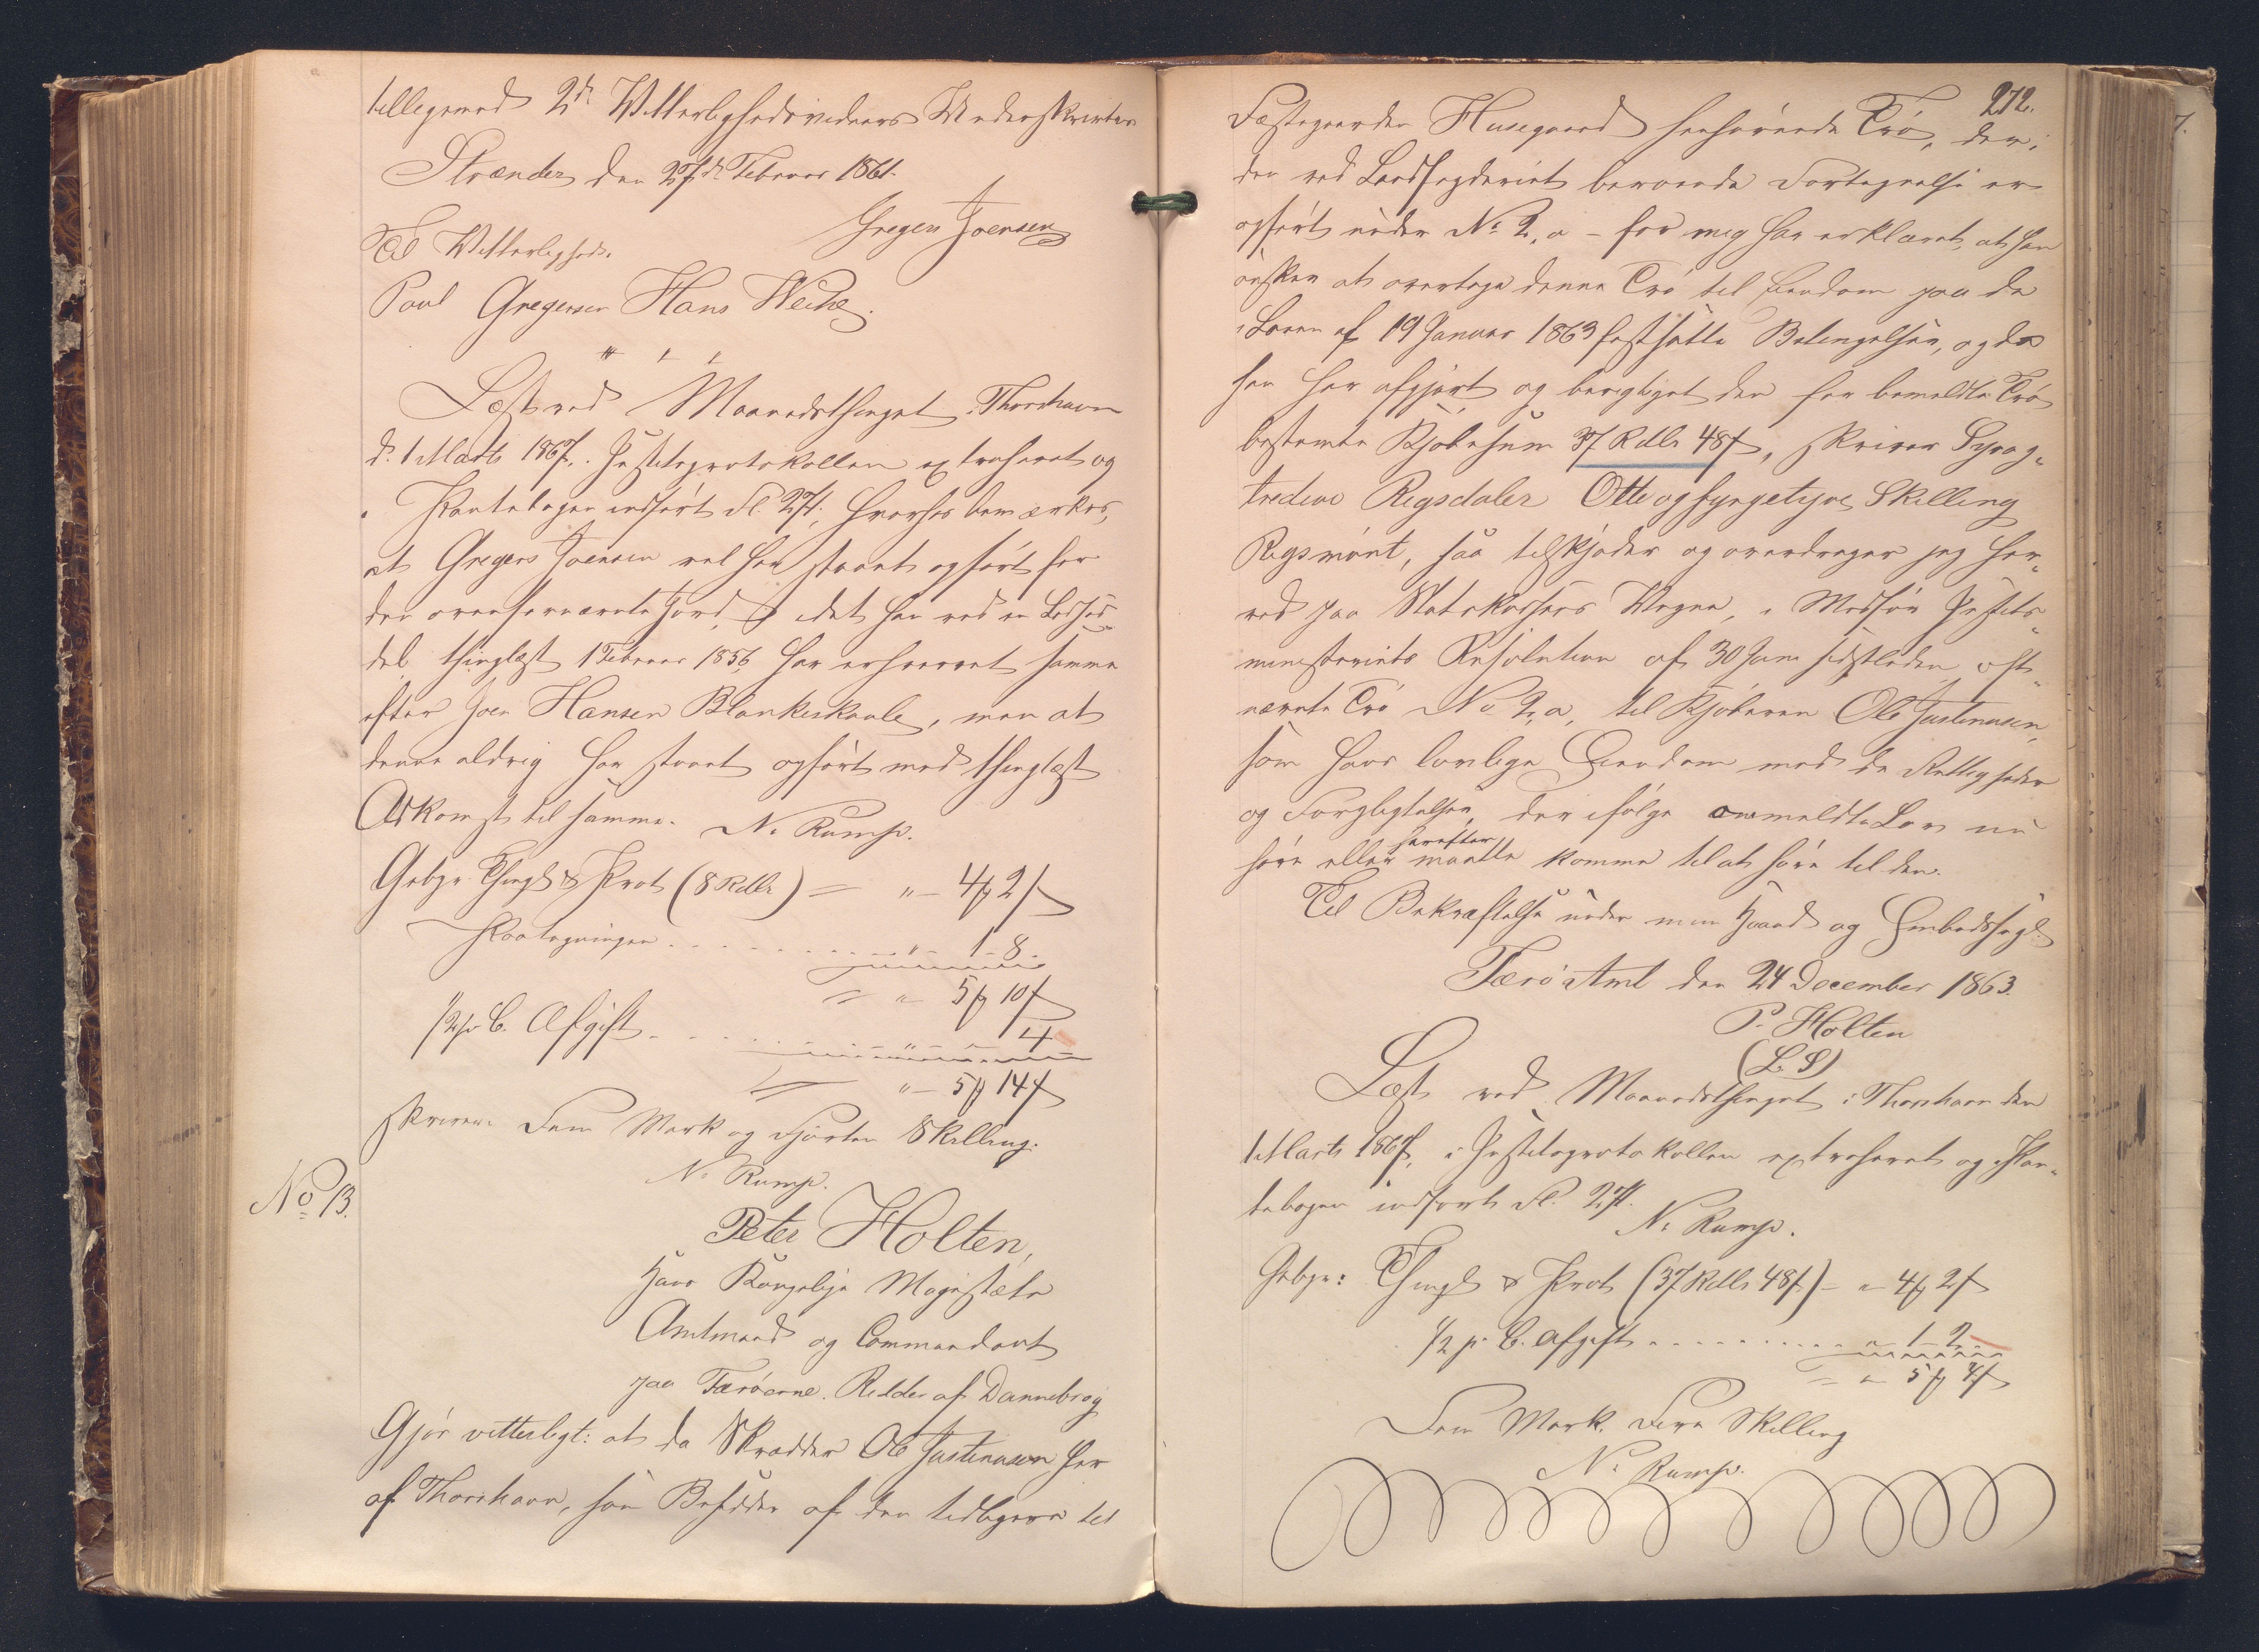 tilligemed 2de Vitterlighedsvidners Underskrivter
Strænder den 27de Februar 1861.
Gregers Joensen
Til Vitterlighed.
Poul Gregersen Hans Weihe.
Læst ved Maanedsthinget i Thorshavn
d. 1 Marts 1867. i Justitsprotokollen extraheret og
i Pantebogen indført Fl. 271, hvorhos bemærkes,
at Gregers Joensen vel har staaet opført for
den ovenfornævnte Jord, idet han ved en Lodsed-
del thinglæst 1 Februar 1856 har erhvervet samme
efter Joen Hansen Blankeskaale, men at
denne aldrig har staaet opført med thinglæst
Adkomst til samme. N. Rump.
Gebyr Thingl & Prot (8 Rdlr) = " - 4 ꝟ 2 ß
Paategningen " 1 - 8
= " 5 ꝟ 10 ß
1/2 p. C. Afgift " 4
= " - 5 ꝟ 14 ß
skriver Fem Mark og Fjorten Skilling.
N. Rump.
No 13.
Peter Holten,
Hans Kongelige Majestæts
Amtmand og Commandant
paa Færøerne. Ridder af Dannebrog
Gjør vitterligt: at da Skrædder Ole Justinusen her
af Thorshavn, som Besidder af den tidligere til
272.
Fæstegaarden Husegaard henhørende Trø, der i
den ved Landfogderiet beroende Fortegnelse er
opført under No 2, a - for mig har erklæret, at han
ønsker at overtage denne Trø til Eiendom paa de
i Loven af 19 Januar 1863 fastsatte Betingelser, og da
han har afgjort og berigtiget den for bemeldte Trø
bestemte Kjøbesum 37 Rdlr 48 ß, skriver Syvog-
tredive Rigsdaler Otteogfyrgetyve Skilling
Rigsmønt, saa tilskjøder og overdrager jeg her-
ved paa Statskassens Vegne, i Medfør Justits-
ministeriets Resolution af 30 Juni sidstleden oft-
nævnte Trø No 2, a, til Kjøberen Ole Justinusen,
som hans lovlige Eiendom med de Rettigheder
og Forpligtelser, der ifølge anmeldte Lov nu
herefter
høre eller maatte komme til at høre til den.
Til Bekræftelse under min Haand og Embedssegl
Færø Amt den 24 December 1863.
P. Holten
(L. S)
Læst ved Maanedsthinget i Thorshavn den
1 Marts 1867, i Justitsprotokollen extraheret og i Pan-
tebogen indført Fl. 271.
N. Rump.
Gebyr: Thingl & Prot (37 Rdlr 48 ß) - " 4 ꝟ 2 ß
1/2 p. C. Afgift " 1 - 2
= " 5 ꝟ 4 ß
Fem Mark. Fire Skilling
N. Rump.